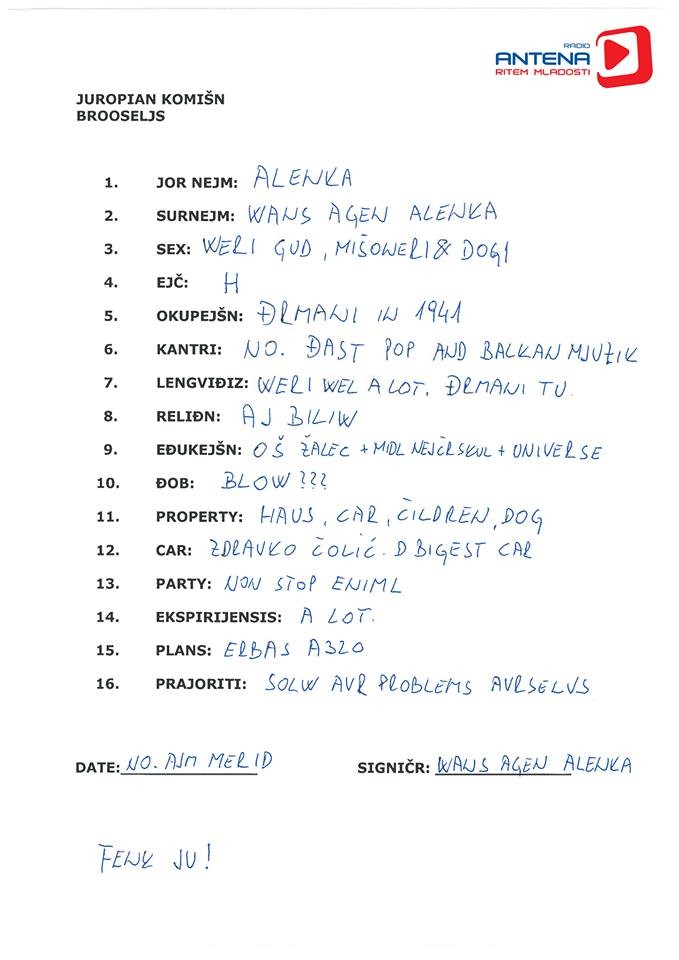 RADIO
ANTENA
RITEM MLADOSTI
JUROPIAN KOMIŠN
BROOSELJS
1. JOR NEJM: ALENKA
2. SURNEJM: WANS AGEN ALENKA
3. SEX: WERI GUD, MIŠOWERI & DOGI
4. EJČ: H
5. OKUPEJŠN: ĐRMANI IN 1941
6. KANTRI: NO. ĐAST POP AND BALKAN MJUZIK
7. LENGVIĐIZ: WERI WEL A LOT. ĐRMANI TU.
8. RELIĐN: AJ BILIW
9. EĐUKEJŠN: OŠ ŽALEC + MIDL NEJČRSKUL + UNIVERSE
10. ĐOB: BLOW???
11. PROPERTY: HAUS, CAR, ČILDREN, DOG
12. CAR: ZDRAVKO ČOLIĆ. D BIGEST CAR
13. PARTY: NON STOP ENIML
14. EKSPIRIJENSIS: A LOT.
15. PLANS: ERBAS A320
16. PRAJORITI: SOLW AUR PROBLEMS AURSELVS
DATE: NO. AJM MERID SIGNIČR: WANS AGEN ALENKA
FENK JU!